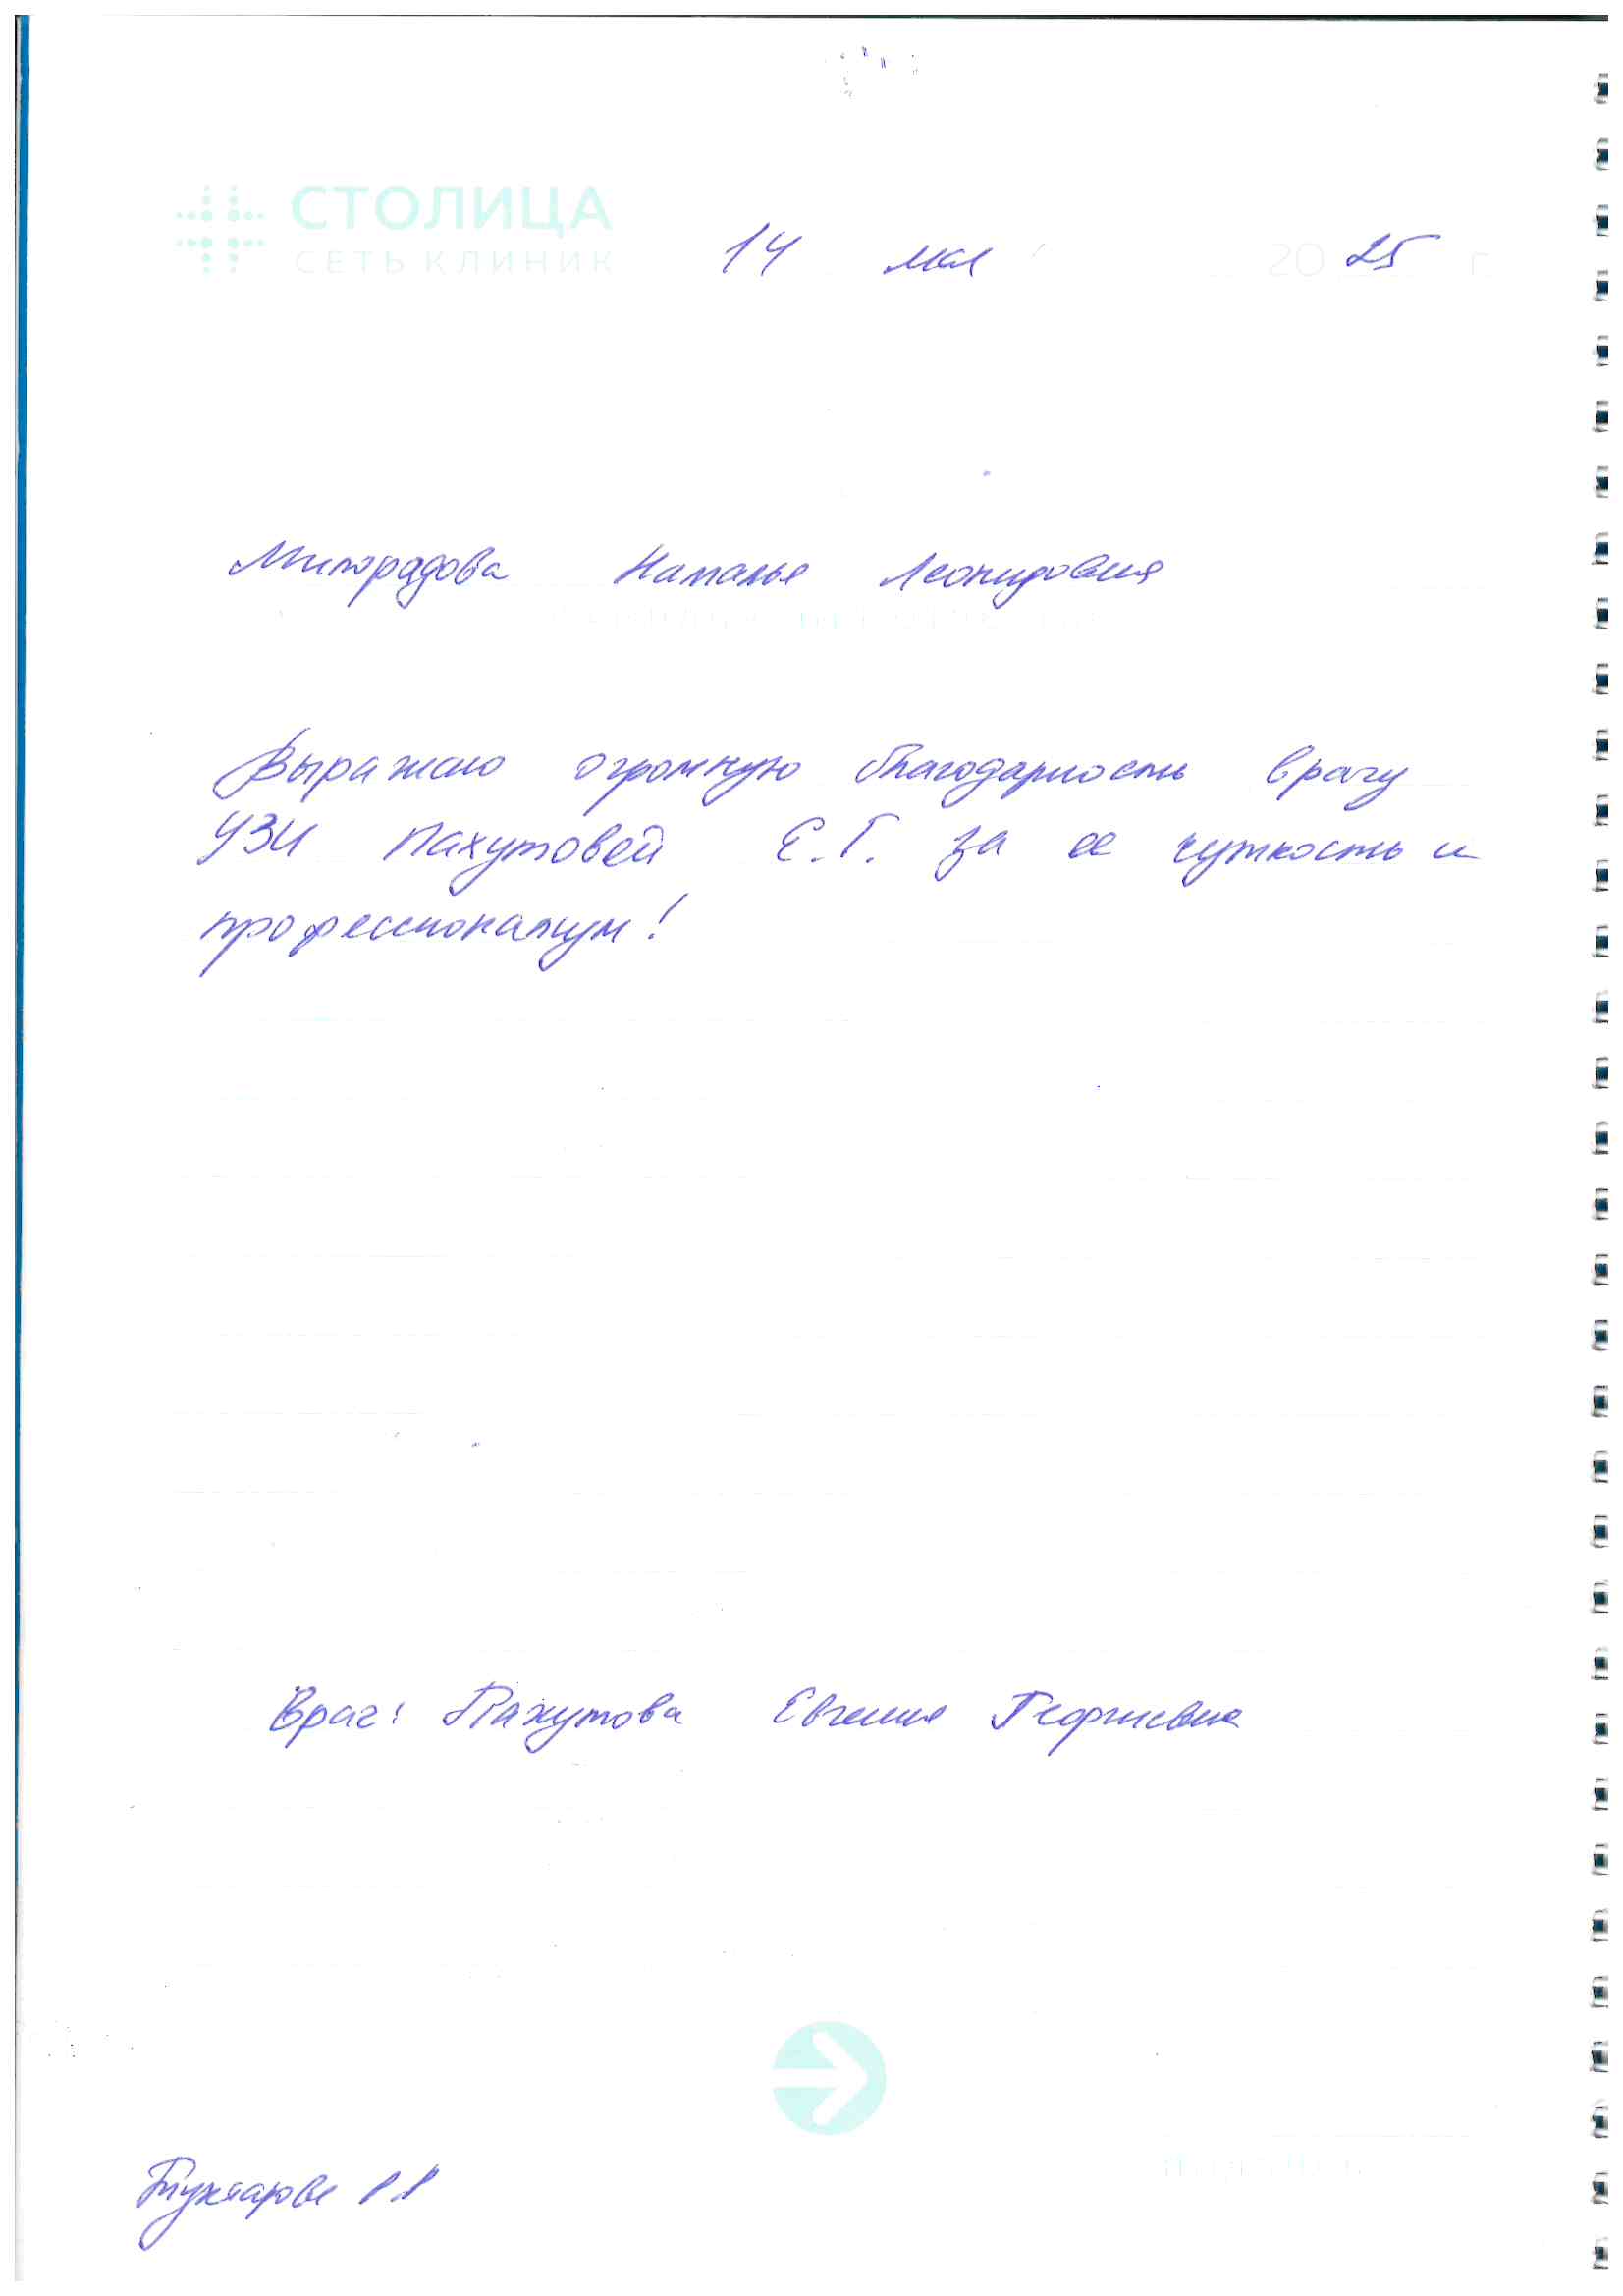 СТОЛИЦА
СЕТЬ КЛИНИК
14 мая 2025 г.
Милорадова Наталья Леонидовна
Выражаю огромную благодарность врачу
УЗИ Пахутовей Е.Г. за ее чуткость и
профессионализм!
Врач: Пахутова Евгения Георгиевна